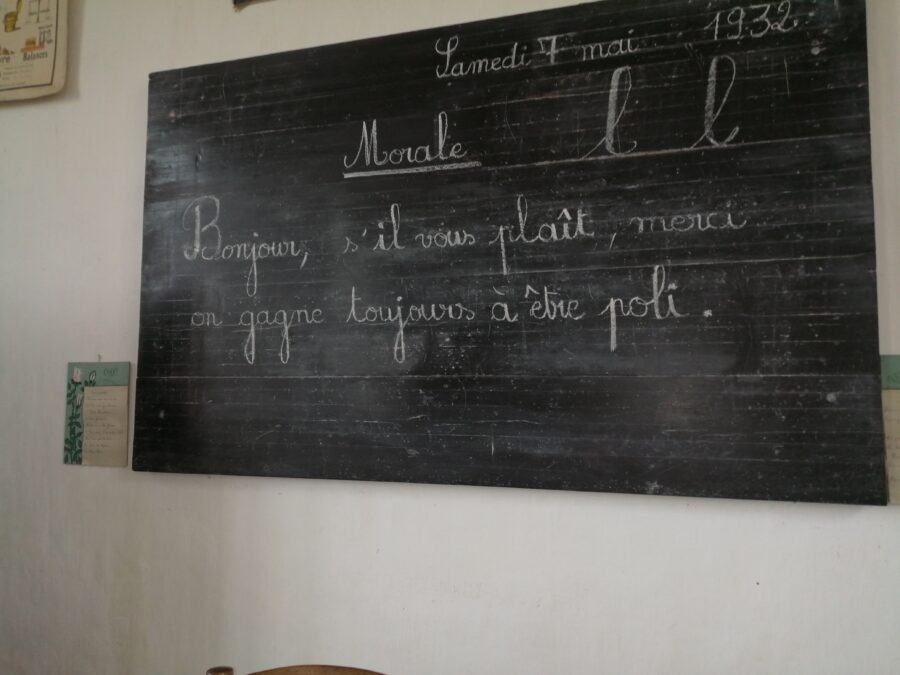 Balances
Samedi 7 mai 1932
l l
Morale
Bonjour, s'il vous plaît, merci
on gagne toujours à être poli.